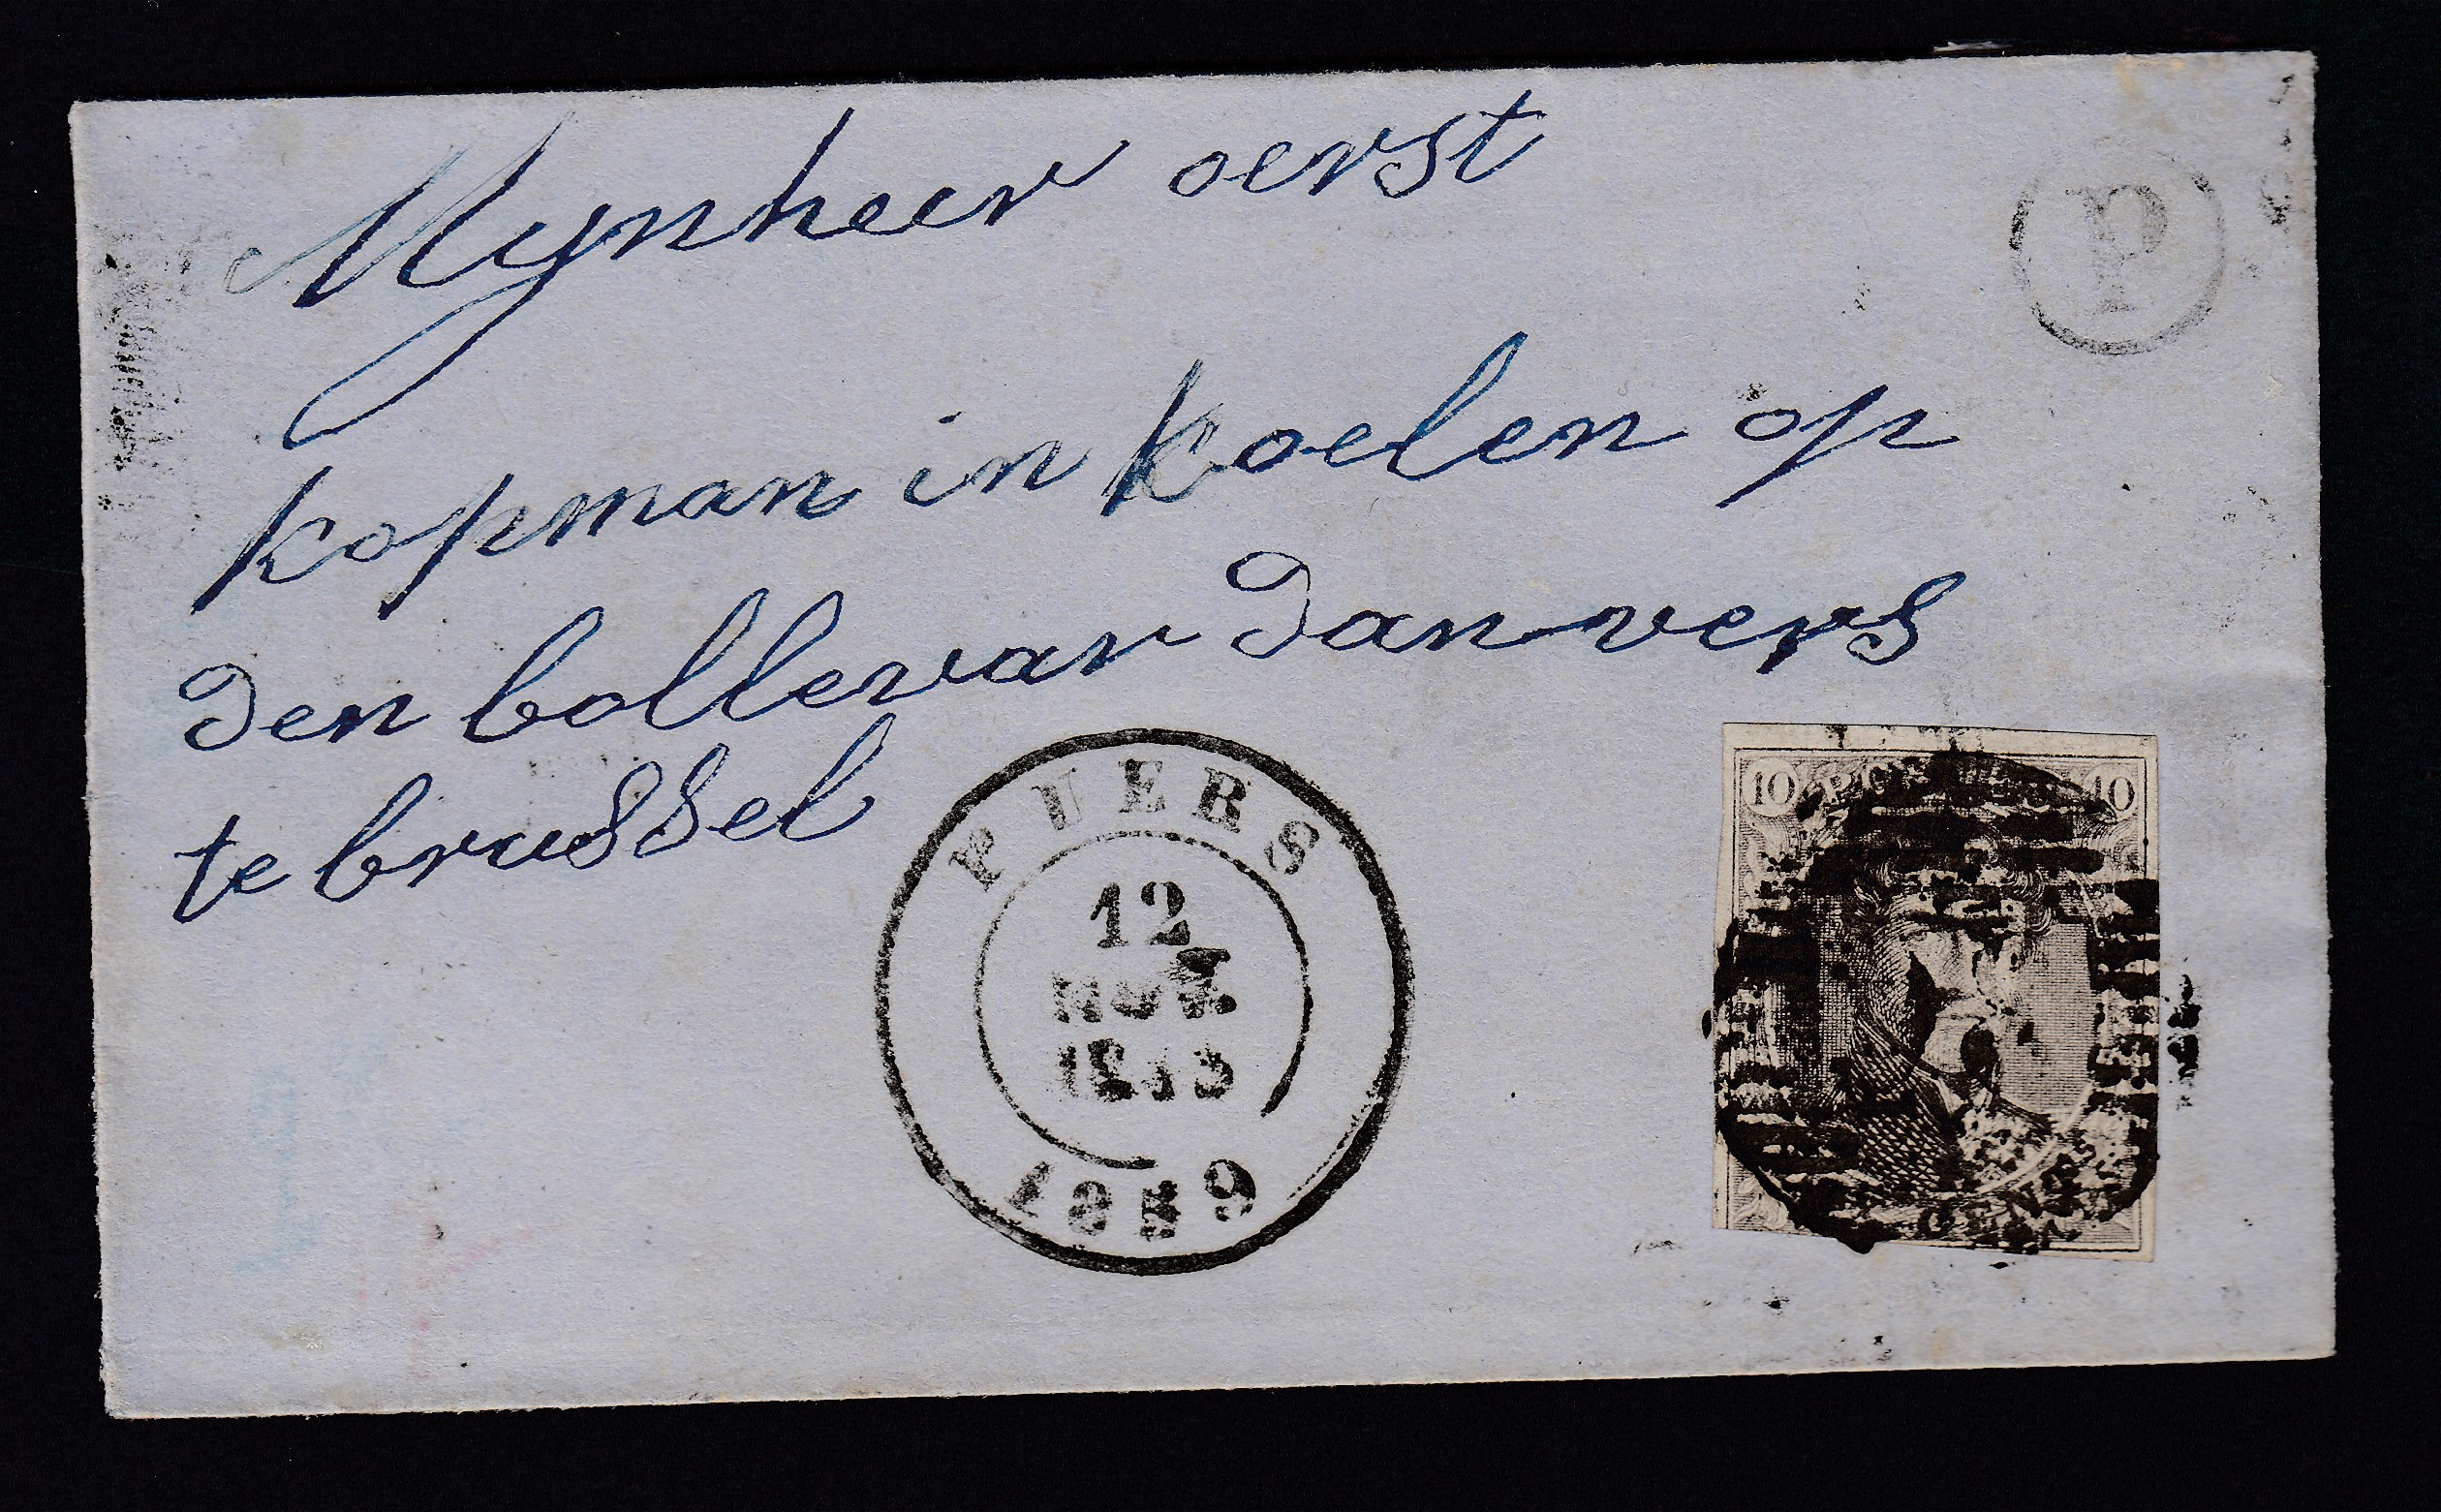 Mynheer oerst
P
kopman in koelen op
den bollevar danvers
te brussel
PUERS
12
1859
10 POSTES 10
CENT